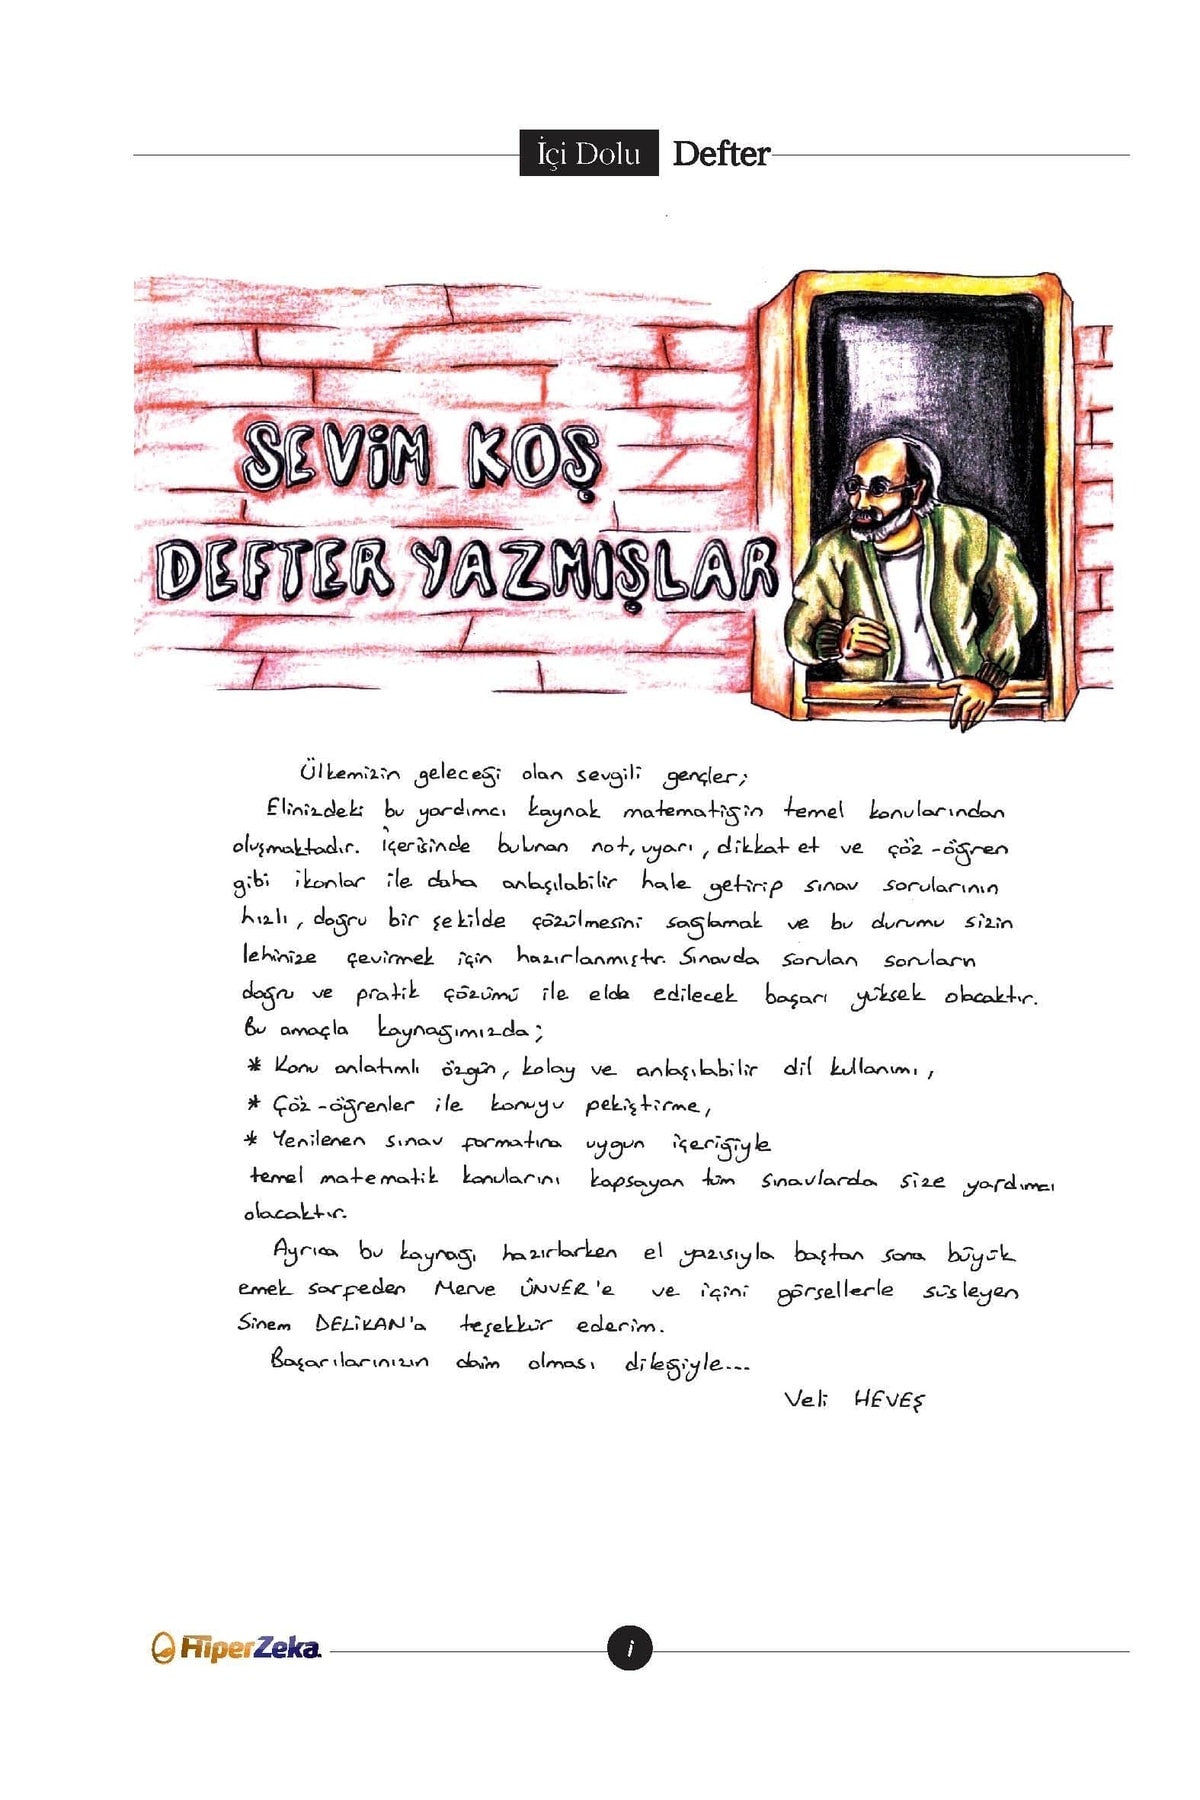 İçi Dolu Defter
SEVİM KOŞ
DEFTER YAZMIŞLAR
Ülkemizin geleceği olan sevgili gençler;
Elinizdeki bu yardımcı kaynak matematiğin temel konularından
oluşmaktadır. İçerisinde bulunan not, uyarı, dikkat et ve çöz-öğren
gibi ikonlar ile daha anlaşılabilir hale getirip sınav sorularının
hızlı, doğru bir şekilde çözülmesini sağlamak ve bu durumu sizin
lehinize çevirmek için hazırlanmıştır. Sınavda sorulan soruların
doğru ve pratik çözümü ile elde edilecek başarı yüksek olacaktır.
Bu amaçla kaynağımızda;
* Konu anlatımlı özgün, kolay ve anlaşılabilir dil kullanımı,
* Çöz-öğrenler ile konuyu pekiştirme,
* Yenilenen sınav formatına uygun içeriğiyle
temel matematik konularını kapsayan tüm sınavlarda size yardımcı
olacaktır.
Ayrıca bu kaynağı hazırlarken el yazısıyla baştan sona büyük
emek sarfeden Merve ÜNVER'e ve içini görsellerle süsleyen
Sinem DELİKAN'a teşekkür ederim.
Başarılarınızın daim olması dileğiyle...
Veli HEVEŞ
HiperZeka
i